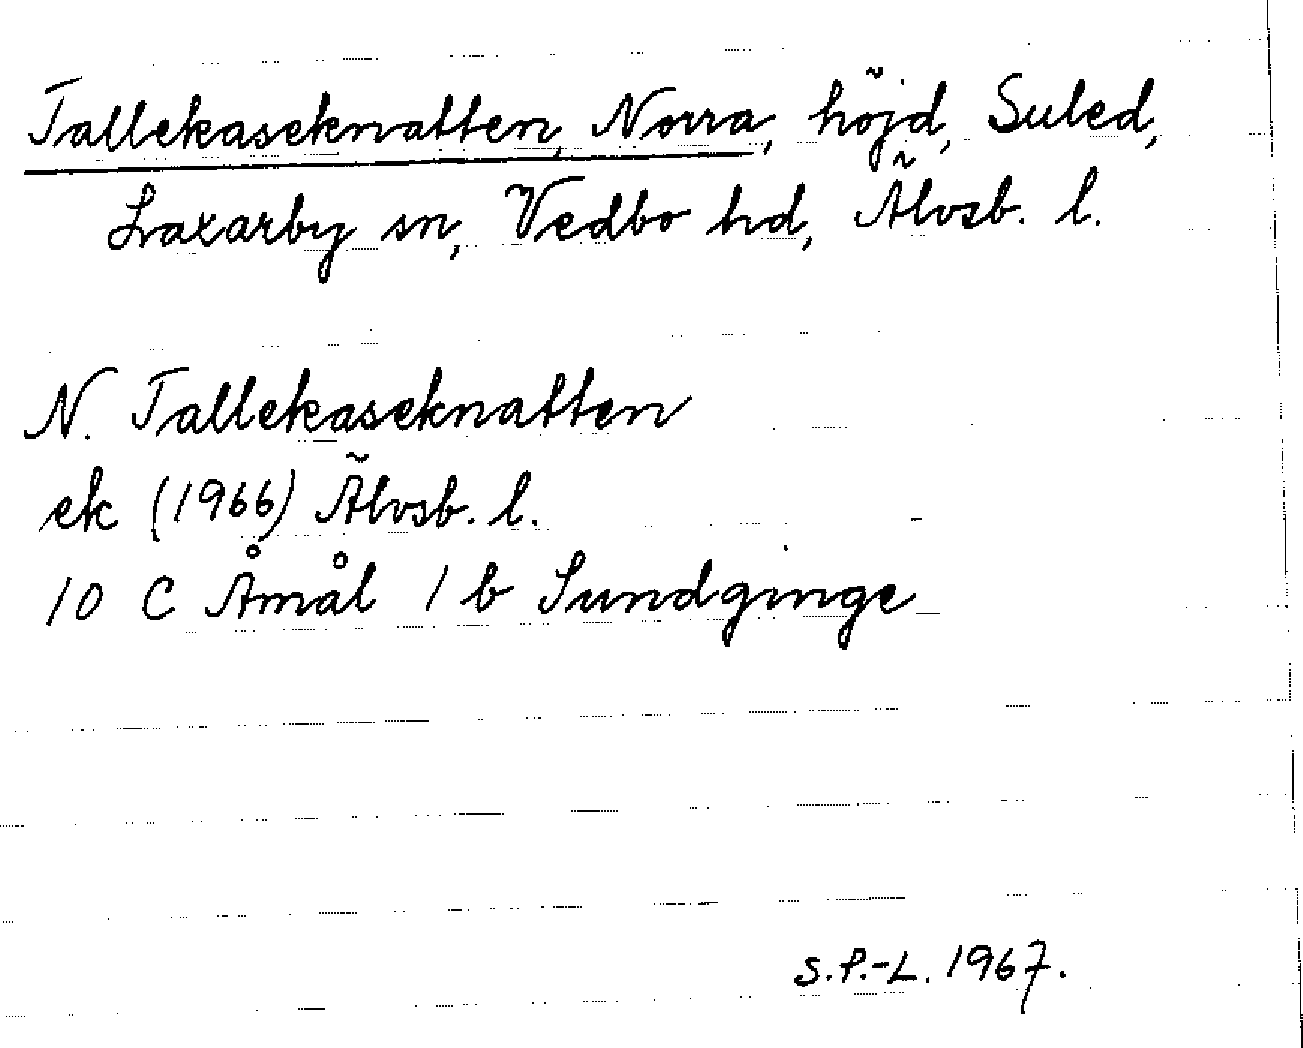 Tallekaseknatten, Norra, höjd, Suled,
Laxarby sn, Vedbo hd, Älvsb. l.
N. Tallekaseknatten
ek (1966) Älvsb. l.
10 C Åmål 1 b Sundginge
S.P.-L. 1967.